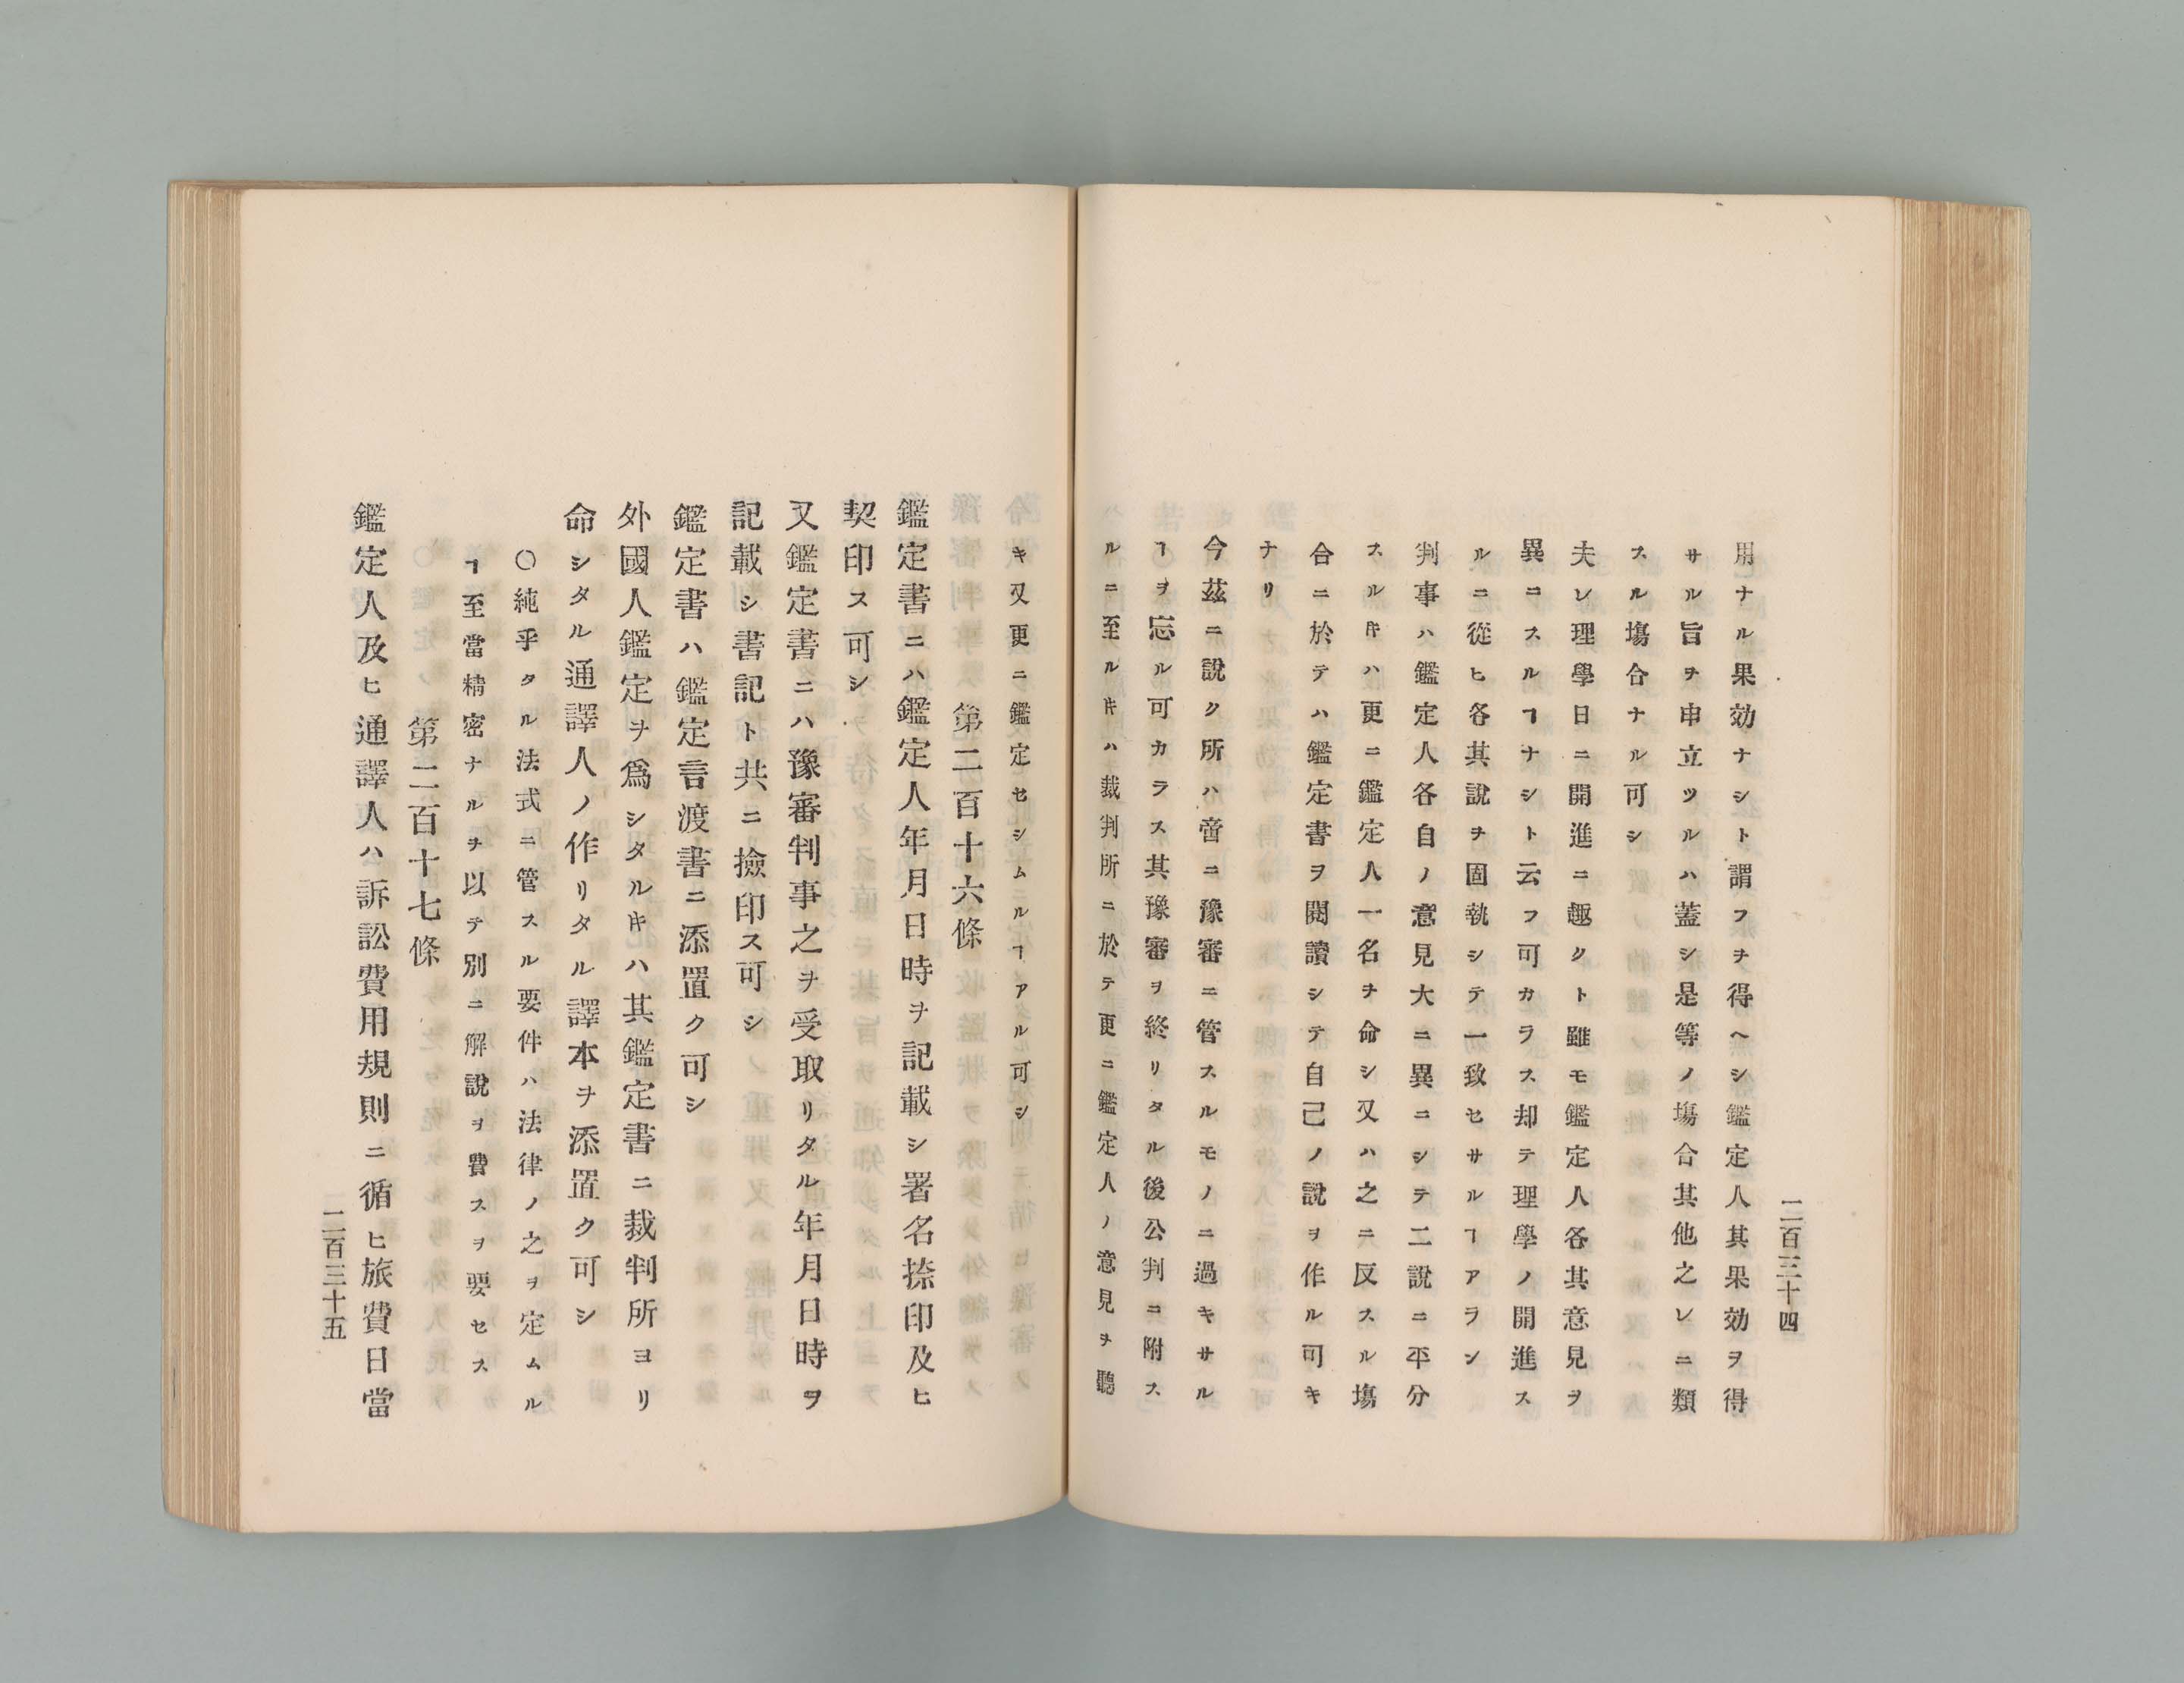 二百三十四
用ナル果効ナシト謂フヲ得ヘシ鑑定人其果効ヲ得
サル旨ヲ申立ツルハ蓋シ是等ノ塲合其他之レニ類
スル塲合ナル可シ
夫レ理學日ニ開進ニ趣クト雖モ鑑定人各其意見ヲ
異ニスルヿナシト云フ可カラス却テ理學ノ開進ス
ルニ從ヒ各其說ヲ固執シテ一致セサルヿアラン
判事ハ鑑定人各自ノ意見大ニ異ニシテ二說ニ平分
スルキハ更ニ鑑定人一名ヲ命シ又ハ之ニ反スル塲
合ニ於テハ鑑定書ヲ閱讀シテ自己ノ說ヲ作ル可キ
ナリ
今茲ニ說ク所ハ啻ニ豫審ニ管スルモノニ過キサル
ヿヲ忘ル可カラス其豫審ヲ終リタル後公判ニ附ス
ルニ至ルキハ裁判所ニ於テ更ニ鑑定人ノ意見ヲ聽
キ又更ニ鑑定セシムルヿアル可シ
第二百十六條
鑑定書ニハ鑑定人年月日時ヲ記載シ署名捺印及ヒ
契印ス可シ
又鑑定書ニハ豫審判事之ヲ受取リタル年月日時ヲ
記載シ書記ト共ニ撿印ス可シ
鑑定書ハ鑑定言渡書ニ添置ク可シ
外國人鑑定ヲ爲シタルキハ其鑑定書ニ裁判所ヨリ
命シタル通譯人ノ作リタル譯本ヲ添置ク可シ
○純乎タル法式ニ管スル要件ハ法律ノ之ヲ定ムル
ヿ至當精密ナルヲ以テ別ニ解說ヲ費スヲ要セス
第二百十七條
鑑定人及ヒ通譯人ハ訴訟費用規則ニ循ヒ旅費日當
二百三十五